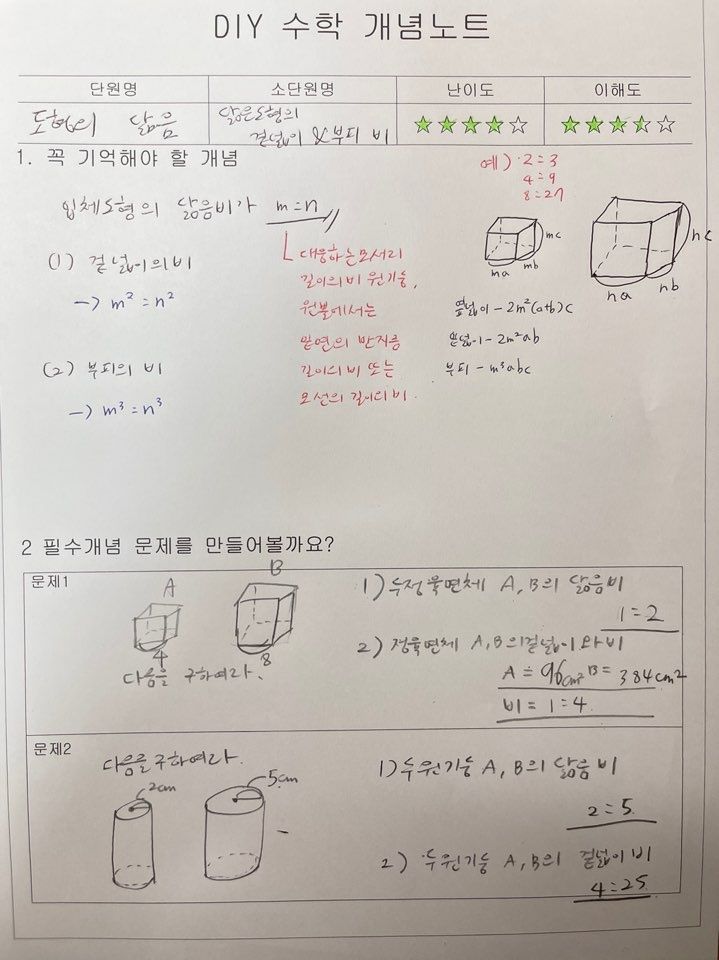 DIY 수학 개념노트
단원명 소단원명 난이도 이해도
도형의 닮음
닮은도형의
겉넓이 & 부피 비
★★★★☆
1. 꼭 기억해야 할 개념
예) 2:3
4:9
8:27
입체도형의 닮음비가 m:n
(1) 겉넓이의 비
→ m²:n²
(2) 부피의 비
→ m³:n³
대응하는 모서리
길이의 비 원기둥,
원뿔에서는
밑면의 반지름
길이의 비 또는
모선의 길이의 비.
ma mb mc
na nb nc
옆넓이 - 2m²(a+b)c
밑넓이 - 2m²ab
부피 - m³abc
2 필수개념 문제를 만들어볼까요?
문제1
A B
4 8
다음을 구하여라.
1) 두정육면체 A, B의 닮음비
1:2
2) 정육면체 A, B의 겉넓이와 비
A = 96cm² B = 384cm²
비 = 1:4
문제2
다음을 구하여라.
2cm 5cm
1) 두 원기둥 A, B의 닮음 비
2:5
2) 두 원기둥 A, B의 겉넓이 비
4:25